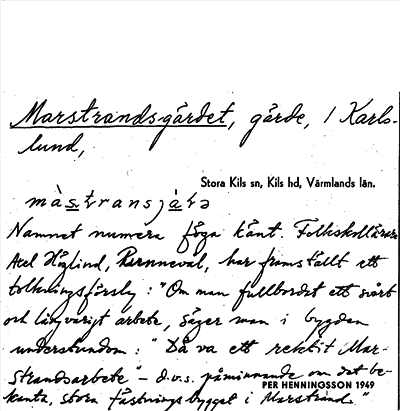 Marstrandsgärdet, gärde, 1 Karls-
lund,
Stora Kils sn, Kils hd, Värmlands län.
màstransjàtə
Namnet numera föga känt. Folkskollärare
Axel Höglind, Runnevål, har framställt ett
tolkningsförslag: "Om man fullbordat ett svårt
och långvarigt arbete, säger man i bygden
understundom: "Då va ett rektit Mar-
strandsarbete" - d.v.s. påminnande om det be-
PER HENNINGSSON 1949
kanta, stora fästningsbygget i Marstrand."